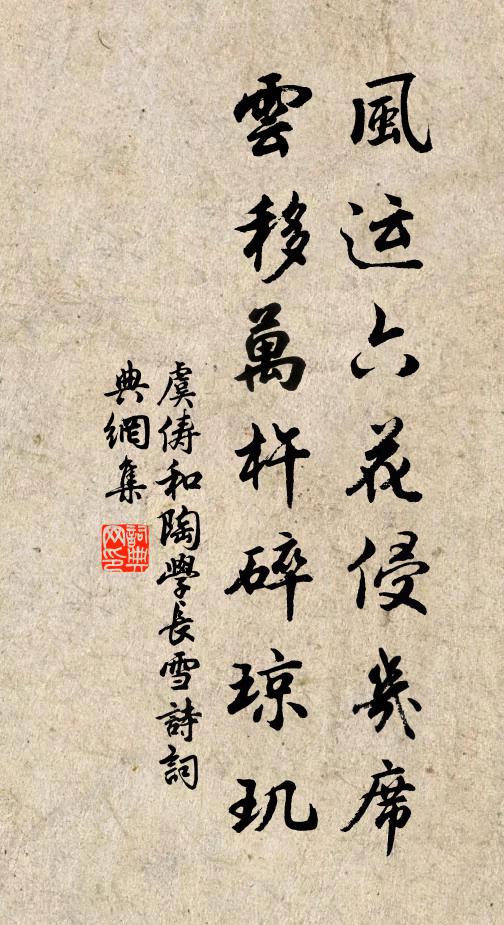 風运六花侵幾席
雲移萬杵碎琼玑
虞俦和陶學長雪詩詞
典網集
詞典
网印